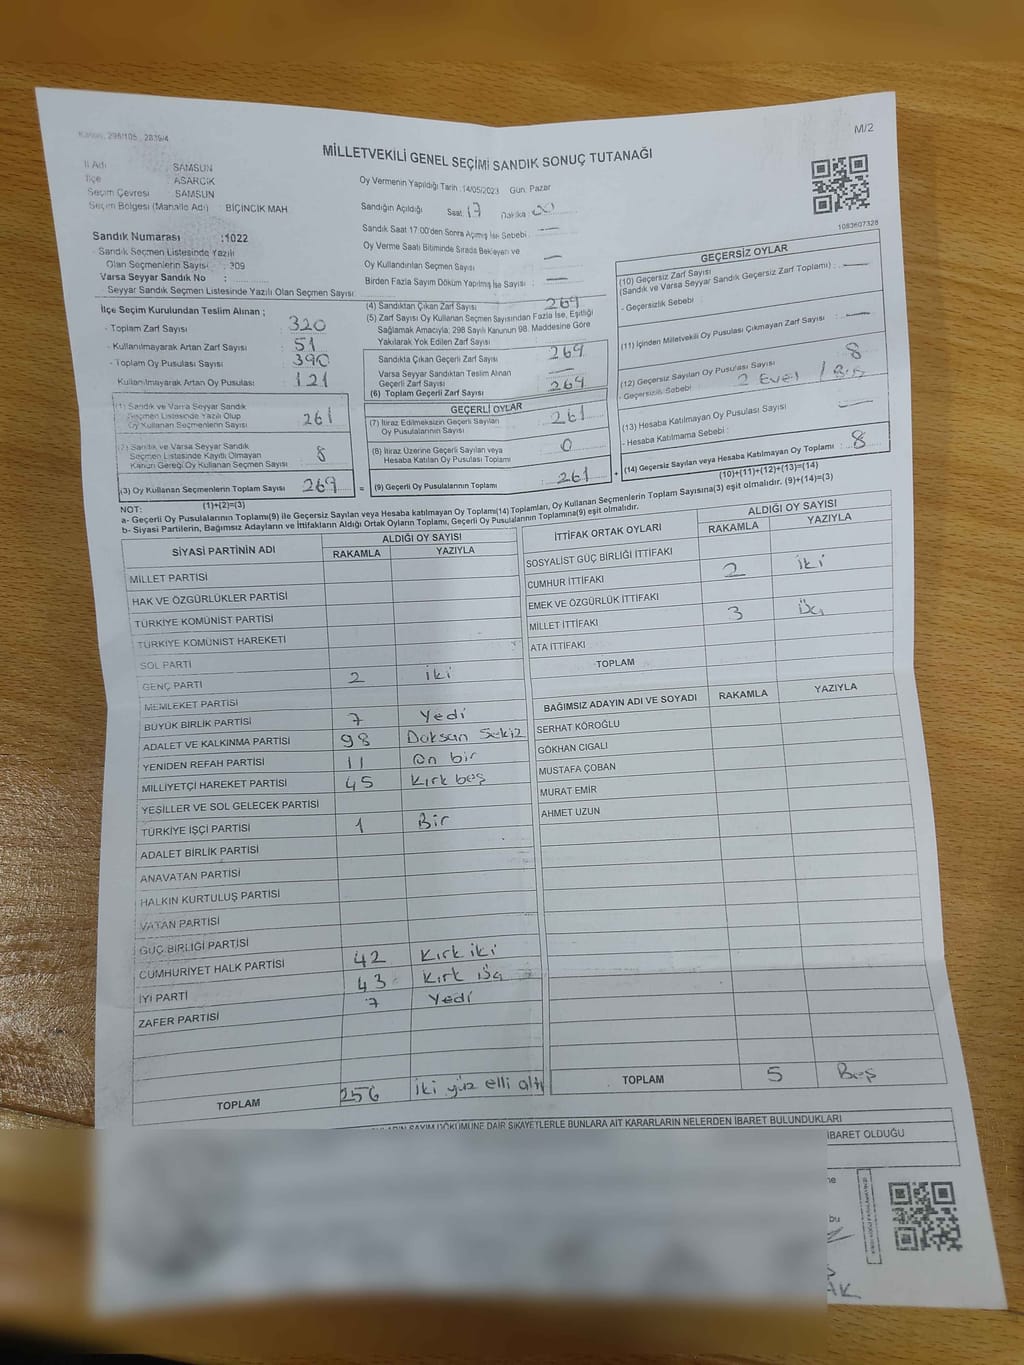 Kanun, 298/105 , 2839/4
M/2
MİLLETVEKİLİ GENEL SEÇİMİ SANDIK SONUÇ TUTANAĞI
İl Adı : SAMSUN
İlçe : ASARCIK
Seçim Çevresi : SAMSUN
Seçim Bölgesi (Mahalle Adı) : BİÇİNCİK MAH
Sandık Numarası :1022
Sandık Seçmen Listesinde Yazılı
Olan Seçmenlerin Sayısı : 309
Varsa Seyyar Sandık No :
Seyyar Sandık Seçmen Listesinde Yazılı Olan Seçmen Sayısı
Oy Vermenin Yapıldığı Tarih :14/05/2023 Gün: Pazar
Sandığın Açıldığı Saat: 17 Dakika: 00
Sandık Saat 17:00'den Sonra Açılmış İse Sebebi : —
Oy Verme Saati Bitiminde Sırada Bekleyen ve
Oy Kullandırılan Seçmen Sayısı : —
Birden Fazla Sayım Döküm Yapılmış İse Sayısı : —
1083607328
İlçe Seçim Kurulundan Teslim Alınan ;
- Toplam Zarf Sayısı : 320
- Kullanılmayarak Artan Zarf Sayısı : 51
- Toplam Oy Pusulası Sayısı : 390
- Kullanılmayarak Artan Oy Pusulası : 121
(1) Sandık ve Varsa Seyyar Sandık
Seçmen Listesinde Yazılı Olup
Oy Kullanan Seçmenlerin Sayısı : 261
(2) Sandık ve Varsa Seyyar Sandık
Seçmen Listesinde Kayıtlı Olmayan
Kanun Gereği Oy Kullanan Seçmen Sayısı : 8
(3) Oy Kullanan Seçmenlerin Toplam Sayısı : 269
(1)+(2)=(3)
(4) Sandıktan Çıkan Zarf Sayısı : 269
(5) Zarf Sayısı Oy Kullanan Seçmen Sayısından Fazla İse, Eşitliği
Sağlamak Amacıyla; 298 Sayılı Kanunun 98. Maddesine Göre
Yakılarak Yok Edilen Zarf Sayısı :
Sandıkta Çıkan Geçerli Zarf Sayısı : 269
Varsa Seyyar Sandıktan Teslim Alınan
Geçerli Zarf Sayısı : —
(6) Toplam Geçerli Zarf Sayısı : 269
GEÇERLİ OYLAR
(7) İtiraz Edilmeksizin Geçerli Sayılan
Oy Pusulalarının Sayısı : 261
(8) İtiraz Üzerine Geçerli Sayılan veya
Hesaba Katılan Oy Pusulası Toplamı : 0
= (9) Geçerli Oy Pusulalarının Toplamı : 261 +
GEÇERSİZ OYLAR
(10) Geçersiz Zarf Sayısı
(Sandık ve Varsa Seyyar Sandık Geçersiz Zarf Toplamı) : —
- Geçersizlik Sebebi :
(11) İçinden Milletvekili Oy Pusulası Çıkmayan Zarf Sayısı : —
(12) Geçersiz Sayılan Oy Pusulası Sayısı : 8
- Geçersizlik Sebebi
(13) Hesaba Katılmayan Oy Pusulası Sayısı : —
- Hesaba Katılmama Sebebi :
(14) Geçersiz Sayılan veya Hesaba Katılmayan Oy Toplamı : 8
(10)+(11)+(12)+(13)=(14)
NOT:
a- Geçerli Oy Pusulalarının Toplamı(9) ile Geçersiz Sayılan veya Hesaba katılmayan Oy Toplamı(14) Toplamları, Oy Kullanan Seçmenlerin Toplam Sayısına(3) eşit olmalıdır. (9)+(14)=(3)
b- Siyasi Partilerin, Bağımsız Adayların ve İttifakların Aldığı Ortak Oyların Toplamı, Geçerli Oy Pusulalarının Toplamına(9) eşit olmalıdır.
SİYASİ PARTİNİN ADI
ALDIĞI OY SAYISI
RAKAMLA YAZIYLA
MİLLET PARTİSİ
HAK VE ÖZGÜRLÜKLER PARTİSİ
TÜRKİYE KOMÜNİST PARTİSİ
TÜRKİYE KOMÜNİST HAREKETİ
SOL PARTİ
GENÇ PARTİ 2 iki
MEMLEKET PARTİSİ
BÜYÜK BİRLİK PARTİSİ 7 Yedi
ADALET VE KALKINMA PARTİSİ 98 Doksan Sekiz
YENİDEN REFAH PARTİSİ 11 On bir
MİLLİYETÇİ HAREKET PARTİSİ 45 Kırk beş
YEŞİLLER VE SOL GELECEK PARTİSİ
TÜRKİYE İŞÇİ PARTİSİ 1 Bir
ADALET BİRLİK PARTİSİ
ANAVATAN PARTİSİ
HALKIN KURTULUŞ PARTİSİ
VATAN PARTİSİ
GÜÇ BİRLİĞİ PARTİSİ
CUMHURİYET HALK PARTİSİ 42 Kırk iki
İYİ PARTİ 43 Kırk üç
ZAFER PARTİSİ 7 Yedi
TOPLAM 256 iki yüz elli altı
İTTİFAK ORTAK OYLARI
ALDIĞI OY SAYISI
RAKAMLA YAZIYLA
SOSYALİST GÜÇ BİRLİĞİ İTTİFAKI
CUMHUR İTTİFAKI 2 iki
EMEK VE ÖZGÜRLÜK İTTİFAKI
MİLLET İTTİFAKI 3 üç
ATA İTTİFAKI
TOPLAM
BAĞIMSIZ ADAYIN ADI VE SOYADI RAKAMLA YAZIYLA
SERHAT KÖROĞLU
GÖKHAN CIGALI
MUSTAFA ÇOBAN
MURAT EMİR
AHMET UZUN
TOPLAM 5 Beş
SAYIM DÖKÜMÜNE DAİR ŞİKAYETLERLE BUNLARA AİT KARARLARIN NELERDEN İBARET BULUNDUKLARI
İBARET OLDUĞU